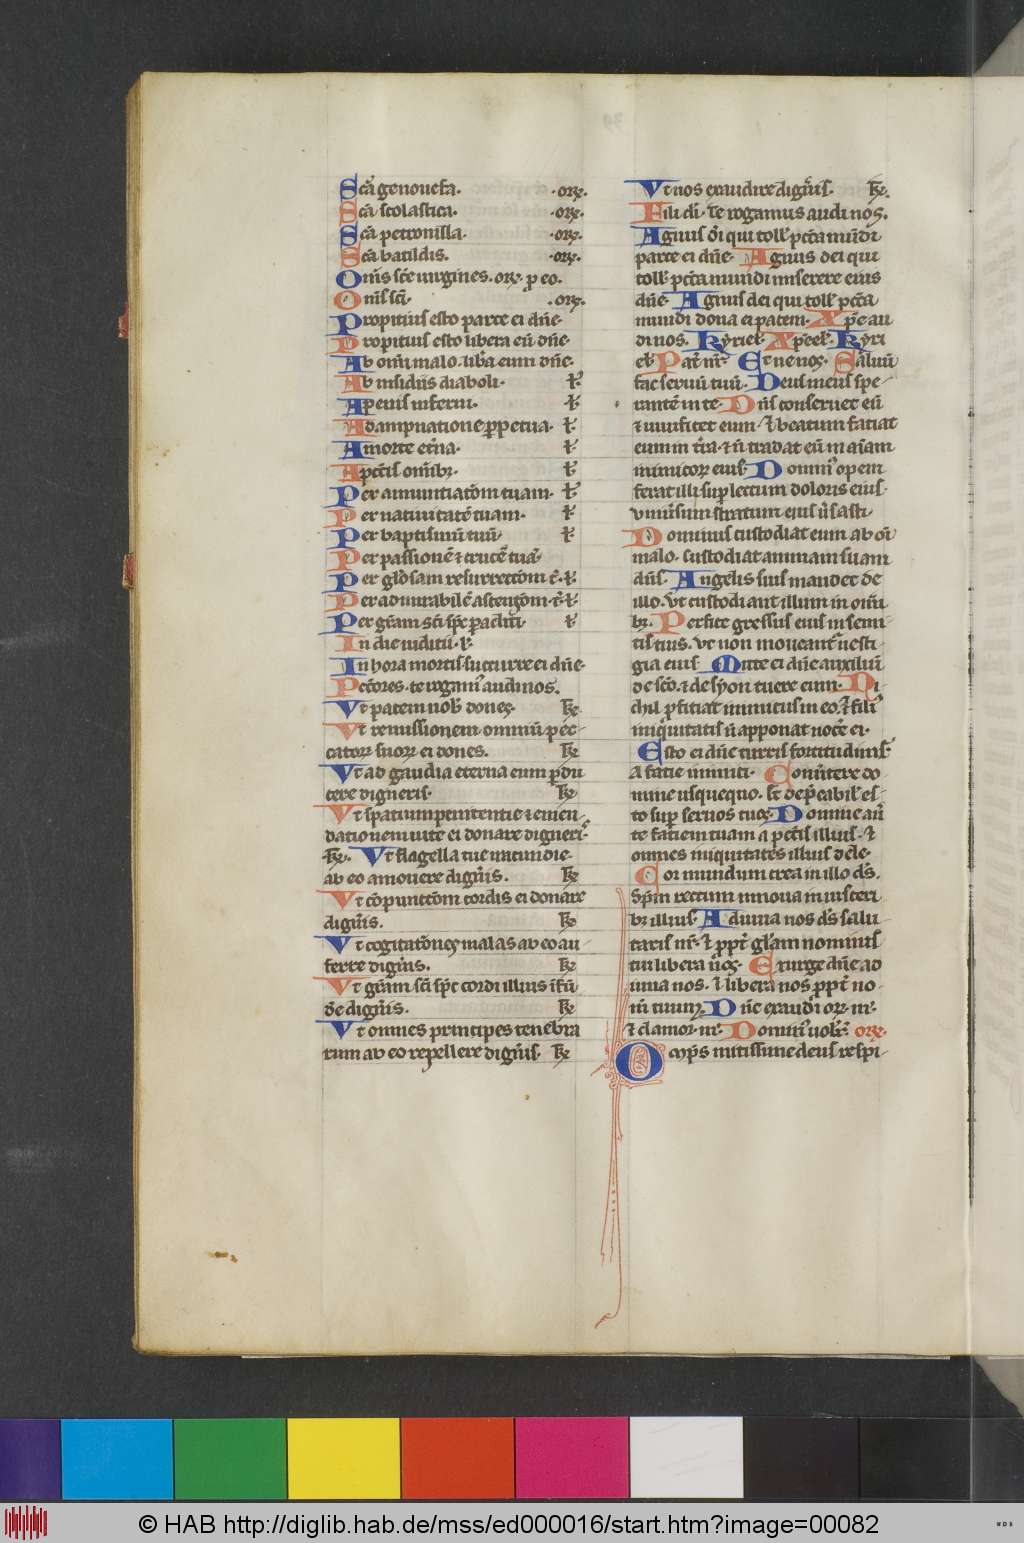 Scā genouefa. .orɐ̃.
Scā scolastica. .orɐ̃.
Scā petronilla. .orɐ̃.
Scā batildis. .orɐ̃.
Om̄s scē uirgines. orɐ̃. p eo.
Om̄s sc̄i. .orɐ̃.
Propitius esto parce ei dn̄e.
Propitius esto libera eū dn̄e.
Ab om̄i malo. lib̄a eum dn̄e.
Ab insidiis diaboli. ł.
A penis inferni. ł.
A dampnatione ꝑpetua. ł.
A morte et̄na. ł.
A pct̄is om̄ibꝫ. ł.
Per annuntiatōm tuam. ł.
Per natiuitatē tuam. ł.
Per baptismū tuū. ł.
Per passionē ⁊ crucē tuā.
Per gl̄osam resurrectōm t̄. ł.
Per admirabilē ascensiom̄ t̄. ł.
Per gr̄am sc̄i sp̄c paracliti. ł.
In die iudicii. ł.
In hora mortis succurre ei dn̄e.
Pctōres. te rogam⁹ audi nos.
Vt pacem nob̄ dones. Te
Vt remissionem omniū pec-
catorꝫ suorꝫ ei dones. Te
Vt ad gaudia eterna eum ꝑdu
cere digneris. Te
Vt spatium penitentie ⁊ emen-
dationem uite ei donare digneris.
Te. Vt flagella tue iracundie
ab eo amouere dign̄is. Te
Vt cōpunctōm cordis ei donare
dign̄is. Te
Vt cogitatōnes malas ab eo au-
ferre dign̄is. Te
Vt gr̄am sc̄i sp̄c cordi illius ifū
de dign̄is. Te
Vt omnes principes tenebra
rum ab eo repellere dign̄is. Te
Vt nos exaudire dign̄is. Te.
Fili dī. Te rogamus audi nos.
Agnus dī qui toll̄ pctā mūdi
parce ei dn̄e. Agnus dei qui
toll̄ pctā mundi miserere eius
dn̄e. Agnus dei qui toll̄ pctā
mundi dona ei pacem. Xp̄e au
di nos. Kyriel̄. Xp̄eel̄. Kyri
el̄. Pat̄ nr̄. Et ne nos. Saluū
fac seruū tuū. Deus meus spe-
rantē in te. Dn̄s conseruet eū
⁊ uiuificet eum. ⁊ beatum faciat
eum in t̄ra. ⁊ n̄ tradat eū in aīam
inimicorꝫ eius. Domin⁹ opem
ferat illi suꝑ lectum doloris eius.
vniūsum stratum eius ūsasti
Dominus custodiat eum ab oī
malo. custodiat animam suam
dn̄s. Angelis suis mandet de
illo. Vt custodiant illum in omi
bꝫ. Perfice gressus eius in semi
tis tuis. Vt non moueant̄ uesti
gia eius. Mitte ei dn̄e auxiliū
de scō. ⁊ de syon tuere eum. Ni
chil ꝓficiat inimicus in eo. ⁊ fili⁹
iniq̄uitatis n̄ apponat nocē ei.
Esto ei dn̄e turris fortitudinis.
A facie inimici. Conūtere do
mine usquequo. ⁊ dep̄cabil̄ es-
to suꝑ seruos tuos. Domine aū
te faciem tuam a pct̄is illius. ⁊
omnes iniquitates illius dele.
Cor mundum crea in illo ds̄.
Sp̄m rectum innoua in uisceri
bꝫ illius. Adiuua nos ds̄ salu
taris nr̄. ⁊ ꝓpt̄ gl̄am nominis
tui libera nos. Exurge dn̄e ad
iuua nos. ⁊ libera nos ꝓpt̄ no-
m̄ tuum. Dn̄e exaudi orꝫ. m̄.
⁊ clamor. m̄. Domin⁹ uobꝫ. orɐ̃.
Omp̄s mitissime deus respi-
© HAB http://diglib.hab.de/mss/ed000016/start.htm?image=00082